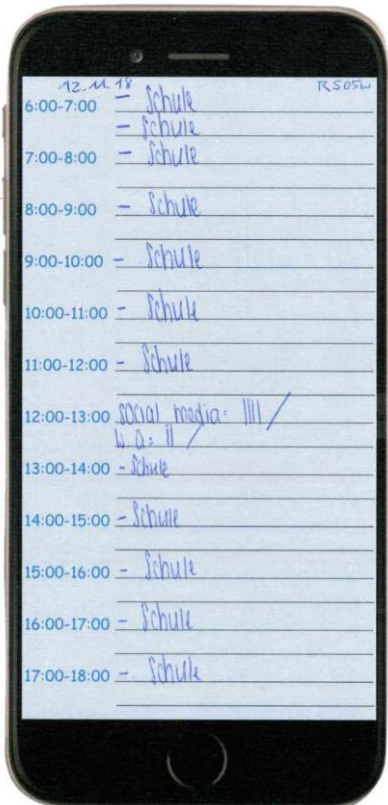 12.11.18 RS05W
6:00-7:00 - Schule
- Schule
7:00-8:00 - Schule
8:00-9:00 - Schule
9:00-10:00 - Schule
10:00-11:00 - Schule
11:00-12:00 - Schule
12:00-13:00 social media: |||| /
W.A: || /
13:00-14:00 - Schule
14:00-15:00 - Schule
15:00-16:00 - Schule
16:00-17:00 - Schule
17:00-18:00 - Schule